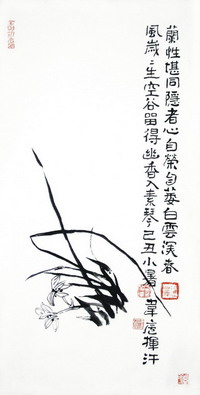 蘭性堪同隱者心自榮自萎白雲深春
風歲々生空谷留得幽香入素琴己丑小暑揮汗